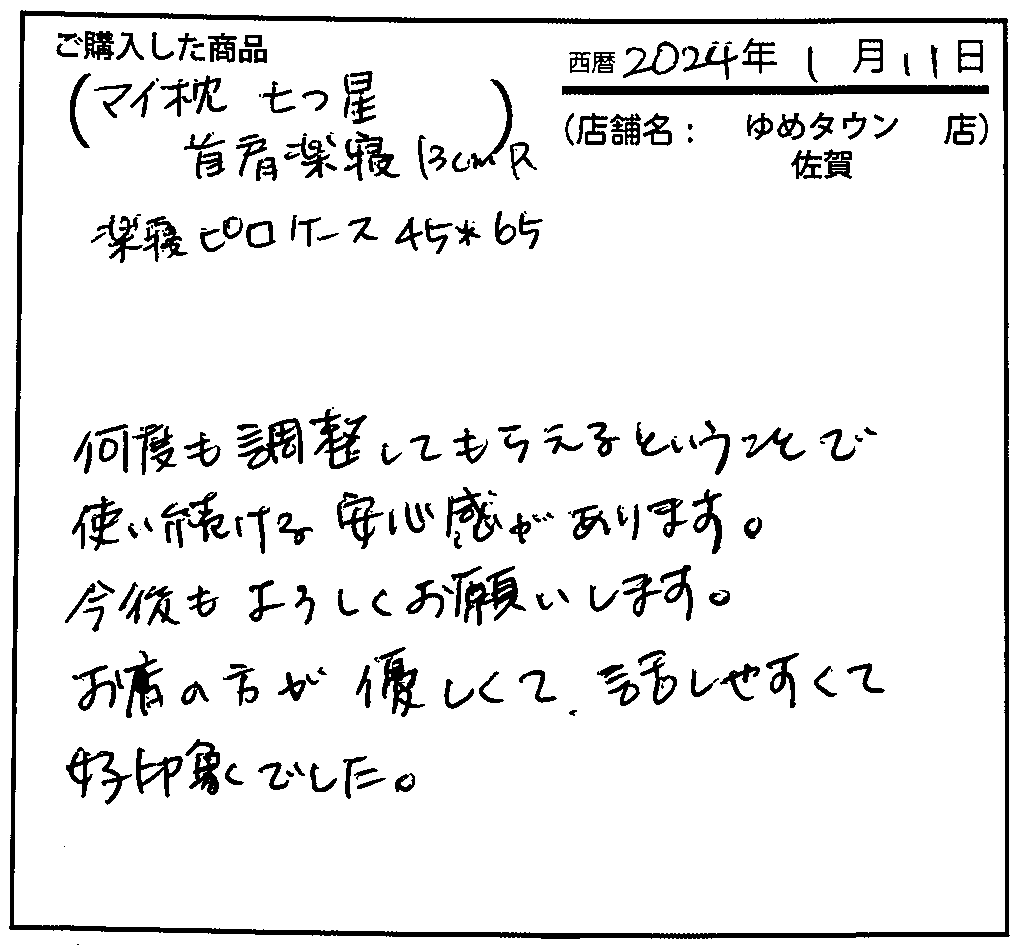 ご購入した商品
西暦 2024年 1月11日
(マイ枕 七つ星
首肩楽寝 13cm R)
(店舗名： ゆめタウン 店)
佐賀
楽寝ピロケース 45*65
何度も調整してもらえるということで
使い続ける安心感があります。
今後もよろしくお願いします。
お店の方が優しくて、話しやすくて
好印象でした。